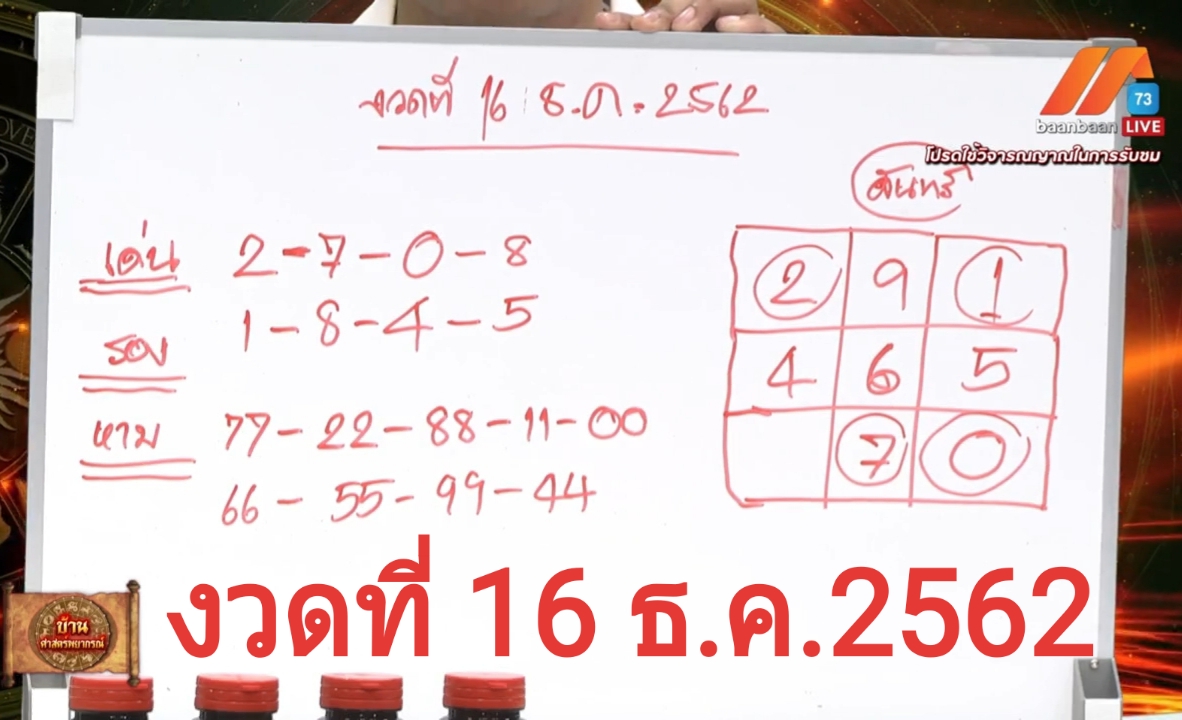 งวดที่ 16 ธ.ค. 2562
73
baanbaan LIVE
โปรดใช้วิจารณญาณในการรับชม
จันทร์
เด่น 2-7-0-8
รอง 1-8-4-5
หาม 77-22-88-11-00
66-55-99-44
2 9 1
4 6 5
7 0
งวดที่ 16 ธ.ค.2562
บ้าน
ศาสตร์พยากรณ์